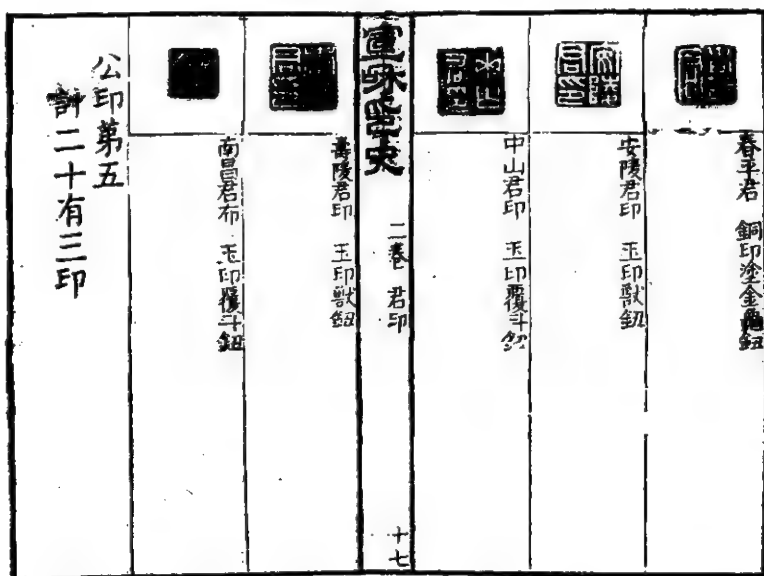 春平君 銅印塗金龜鈕
安陵君印 玉印獸鈕
中山君印 玉印覆斗鈕
宣和印史 二卷 君印 十七
壽陵君印 玉印獸鈕
南昌君布 玉印覆斗鈕
公印第五
計二十有三印